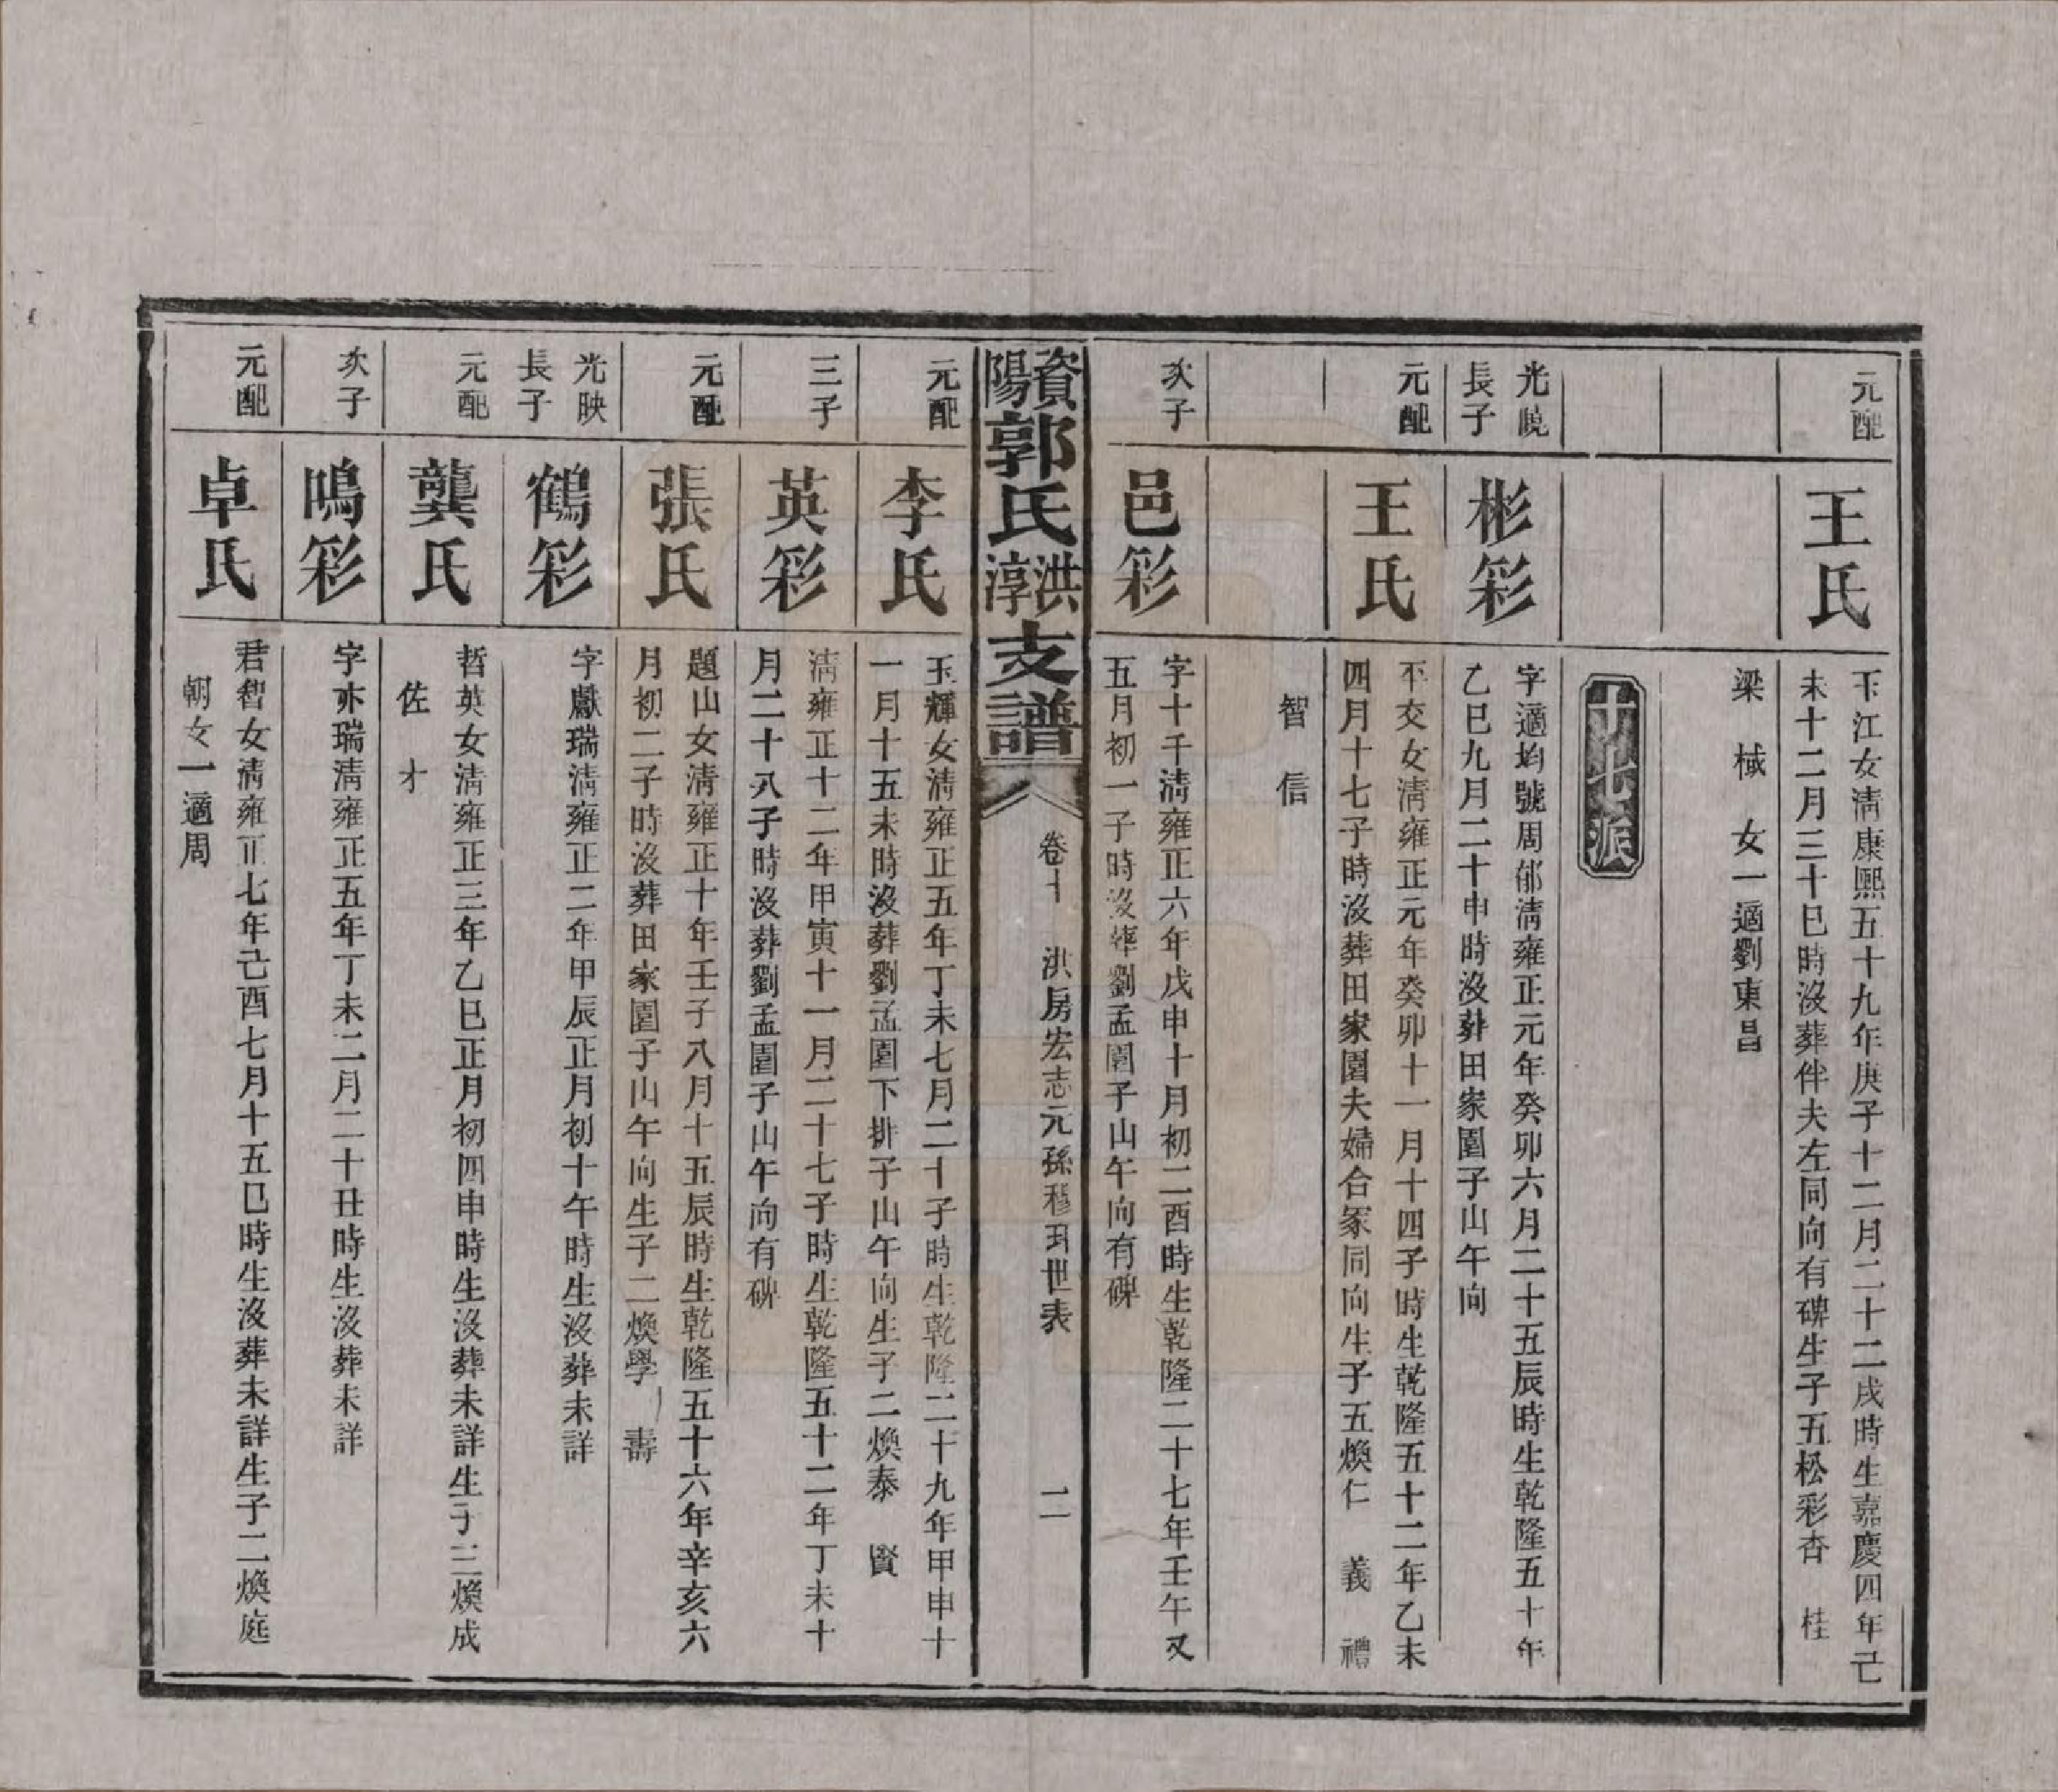 元配
王氏
玉江女清康熙五十九年庚子十二月二十二戌時生嘉慶四年己
未十二月三十巳時沒葬伴夫左同向有碑生子五松彩杏 桂
梁 棫 女一適劉東昌
十七派
光曉
長子
彬彩
字適均號周郁清雍正元年癸卯六月二十五辰時生乾隆五十年
乙巳九月二十申時沒葬田家園子山午向
元配
王氏
丕交女清雍正元年癸卯十一月十四子時生乾隆五十二年乙未
四月十七子時沒葬田家園夫婦合冢同向生子五煥仁 義 禮
智 信
次子
邑彩
字十千清雍正六年戊申十月初二酉時生乾隆二十七年壬午又
五月初一子時沒葬劉孟園子山午向有碑
資陽郭氏洪淳支譜
卷十 洪房宏志元孫穆玥世表 二
元配
李氏
玉輝女清雍正五年丁未七月二十子時生乾隆二十九年甲申十
一月十五未時沒葬劉孟園下排子山午向生子二煥泰 賢
三子
英彩
清雍正十二年甲寅十一月二十七子時生乾隆五十二年丁未十
月二十八子時沒葬劉孟園子山午向有碑
元配
張氏
題山女清雍正十年壬子八月十五辰時生乾隆五十六年辛亥六
月初二子時沒葬田家園子山午向生子二煥學 壽
光映
長子
鶴彩
字獻瑞清雍正二年甲辰正月初十午時生沒葬未詳
元配
龔氏
哲英女清雍正三年乙巳正月初四申時生沒葬未詳生子三煥成
佐 才
次子
鳴彩
字亦瑞清雍正五年丁未二月二十丑時生沒葬未詳
元配
卓氏
君智女清雍正七年己酉七月十五巳時生沒葬未詳生子二煥庭
朝女一適周